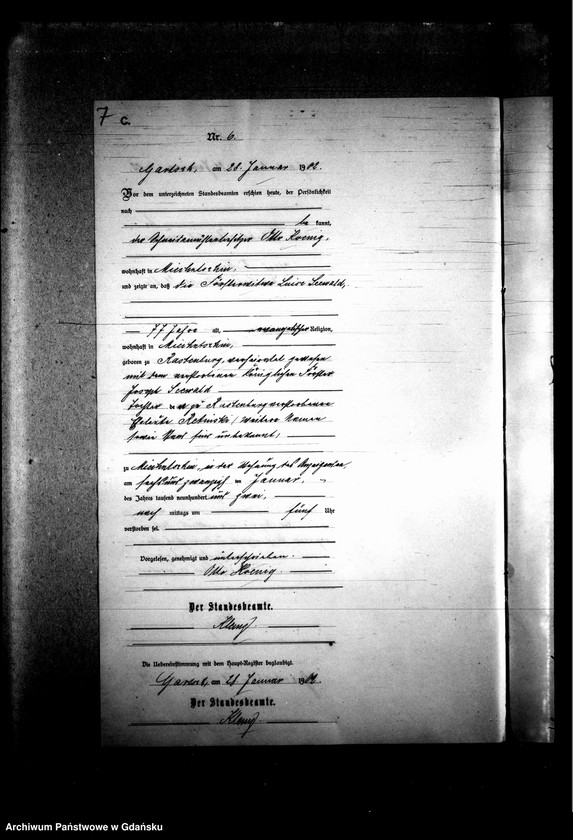 7 C.
Nr. 6.
am 28. Januar 1902.
Vor dem unterzeichneten Standesbeamten erschien heute, der Persönlichkeit
nach
be kannt,
der Schneidemühlenbesitzer Otto Koenig,
wohnhaft in
und zeigte an, daß die Försterwitwe Luise Seewald,
77 Jahre alt, evangelischer Religion,
wohnhaft in
geboren zu Rastenburg, verheiratet gewesen
mit dem verstorbenen Königlichen Förster
Joseph Seewald
Tochter der zu Rastenburg verstorbenen
Eheleute weitere Namen
sowie Stand sind unbekannt,
zu in der Wohnung des Anzeigenden,
am sechsundzwanzigsten Januar,
des Jahres tausend neunhundert und zwei,
nach mittags um fünf Uhr
verstorben sei.
Vorgelesen, genehmigt und unterschrieben.
Otto Koenig.
Der Standesbeamte.
Die Uebereinstimmung mit dem Haupt-Register beglaubigt.
am 28 Januar 1902.
Der Standesbeamte.
Archiwum Państwowe w Gdańsku